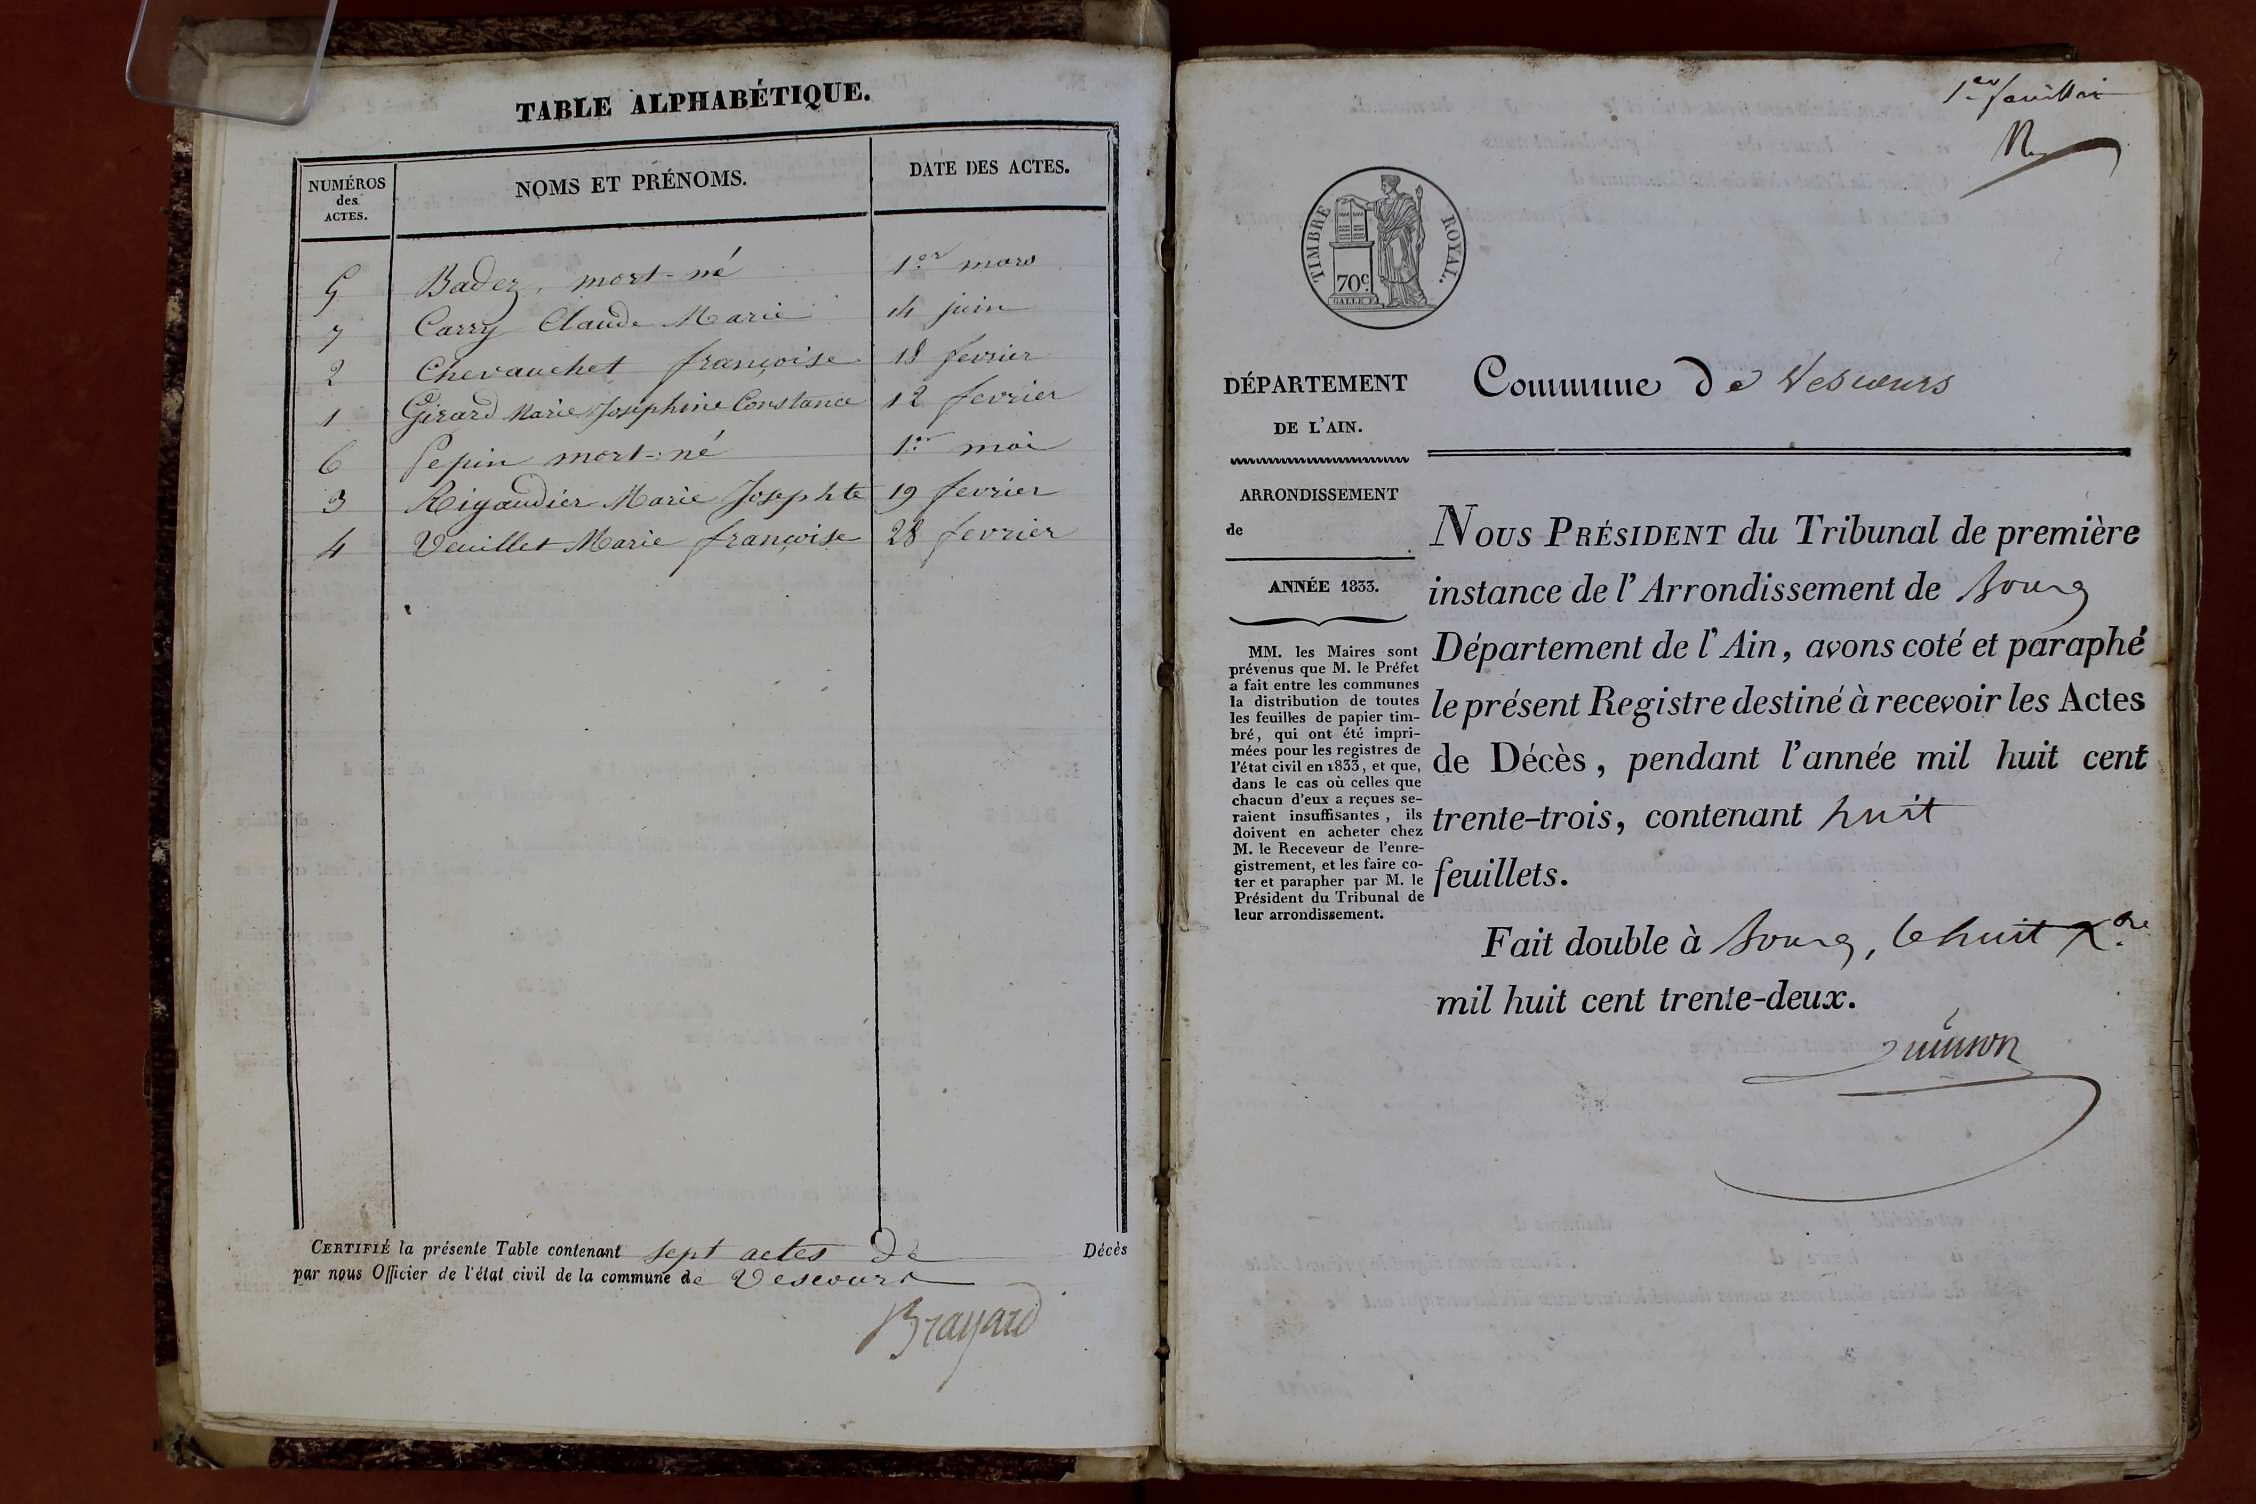 TABLE ALPHABÉTIQUE.
NUMÉROS des ACTES. NOMS ET PRÉNOMS. DATE DES ACTES.
5 Badez, mort-né 1er mars
7 Carry Claude Marie 14 juin
2 Chevauchet françoise 18 fevrier
1 Girard Marie Josephine Constance 12 fevrier
6 Pepin mort-né 1er mai
3 Rigaudier Marie Josephte 19 fevrier
4 Veuillet Marie françoise 28 fevrier
CERTIFIÉ la présente Table contenant sept actes de Décès
par nous Officier de l'état civil de la commune de Vescours
Brayard
1er feuillet
TIMBRE ROYAL.
70c.
GALLE F.
DÉPARTEMENT
DE L'AIN.
ARRONDISSEMENT
de
ANNÉE 1833.
MM. les Maires sont
prévenus que M. le Préfet
a fait entre les communes
la distribution de toutes
les feuilles de papier tim-
bré, qui ont été impri-
mées pour les registres de
l'état civil en 1833, et que,
dans le cas où celles que
chacun d'eux a reçues se-
raient insuffisantes, ils
doivent en acheter chez
M. le Receveur de l'enre-
gistrement, et les faire co-
ter et parapher par M. le
Président du Tribunal de
leur arrondissement.
Commune de Vescours
NOUS PRÉSIDENT du Tribunal de première
instance de l'Arrondissement de Bourg
Département de l'Ain, avons coté et paraphé
le présent Registre destiné à recevoir les Actes
de Décès, pendant l'année mil huit cent
trente-trois, contenant huit
feuillets.
Fait double à Bourg, le huit Xbre
mil huit cent trente-deux.
Quinson